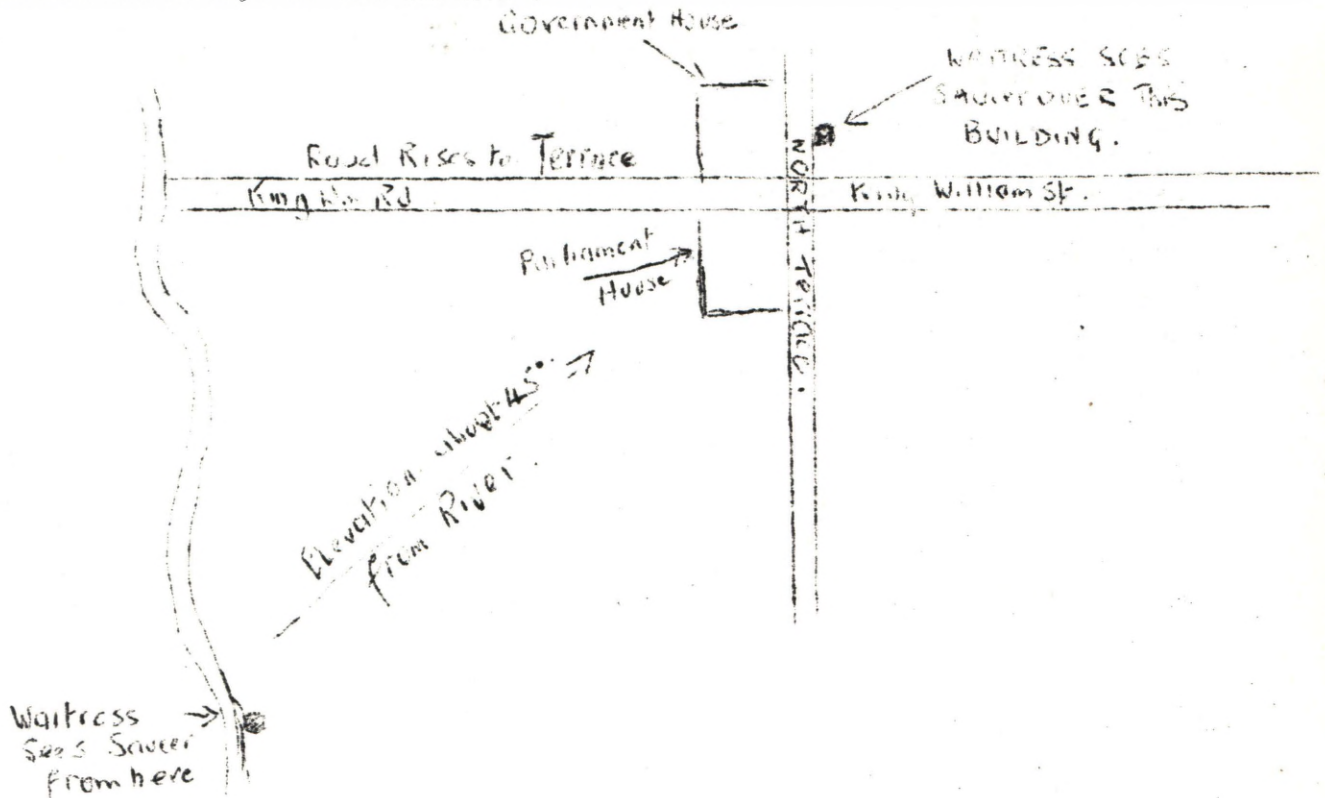 Government House
WAITRESS SEES
SAUCER OVER THIS
BUILDING.
Road Rises to Terrace
King Wm Rd
King William St.
NORTH TERRACE.
Parliament
House
Elevation about 45°
from River.
Waitress
Sees Saucer
from here